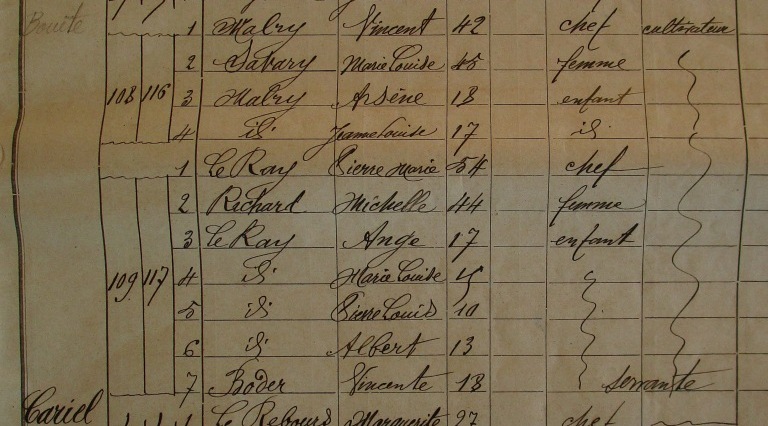 Bouëté 1 Malry Vincent 42 chef cultivateur
2 Savary Marie Louise 45 femme
108 116 3 Malry Arsène 18 enfant
4 id. Jeanne Louise 17 id.
1 Le Ray Pierre Marie 54 chef
2 Richard Michelle 44 femme
3 Le Ray Ange 17 enfant
109 117 4 id. Marie Louise 15
5 id. Pierre Louis 10
6 id. Albert 13
7 Boder Vincente 18 servante
Cariel 1 1 1 Le Rebours Marguerite 27 chef